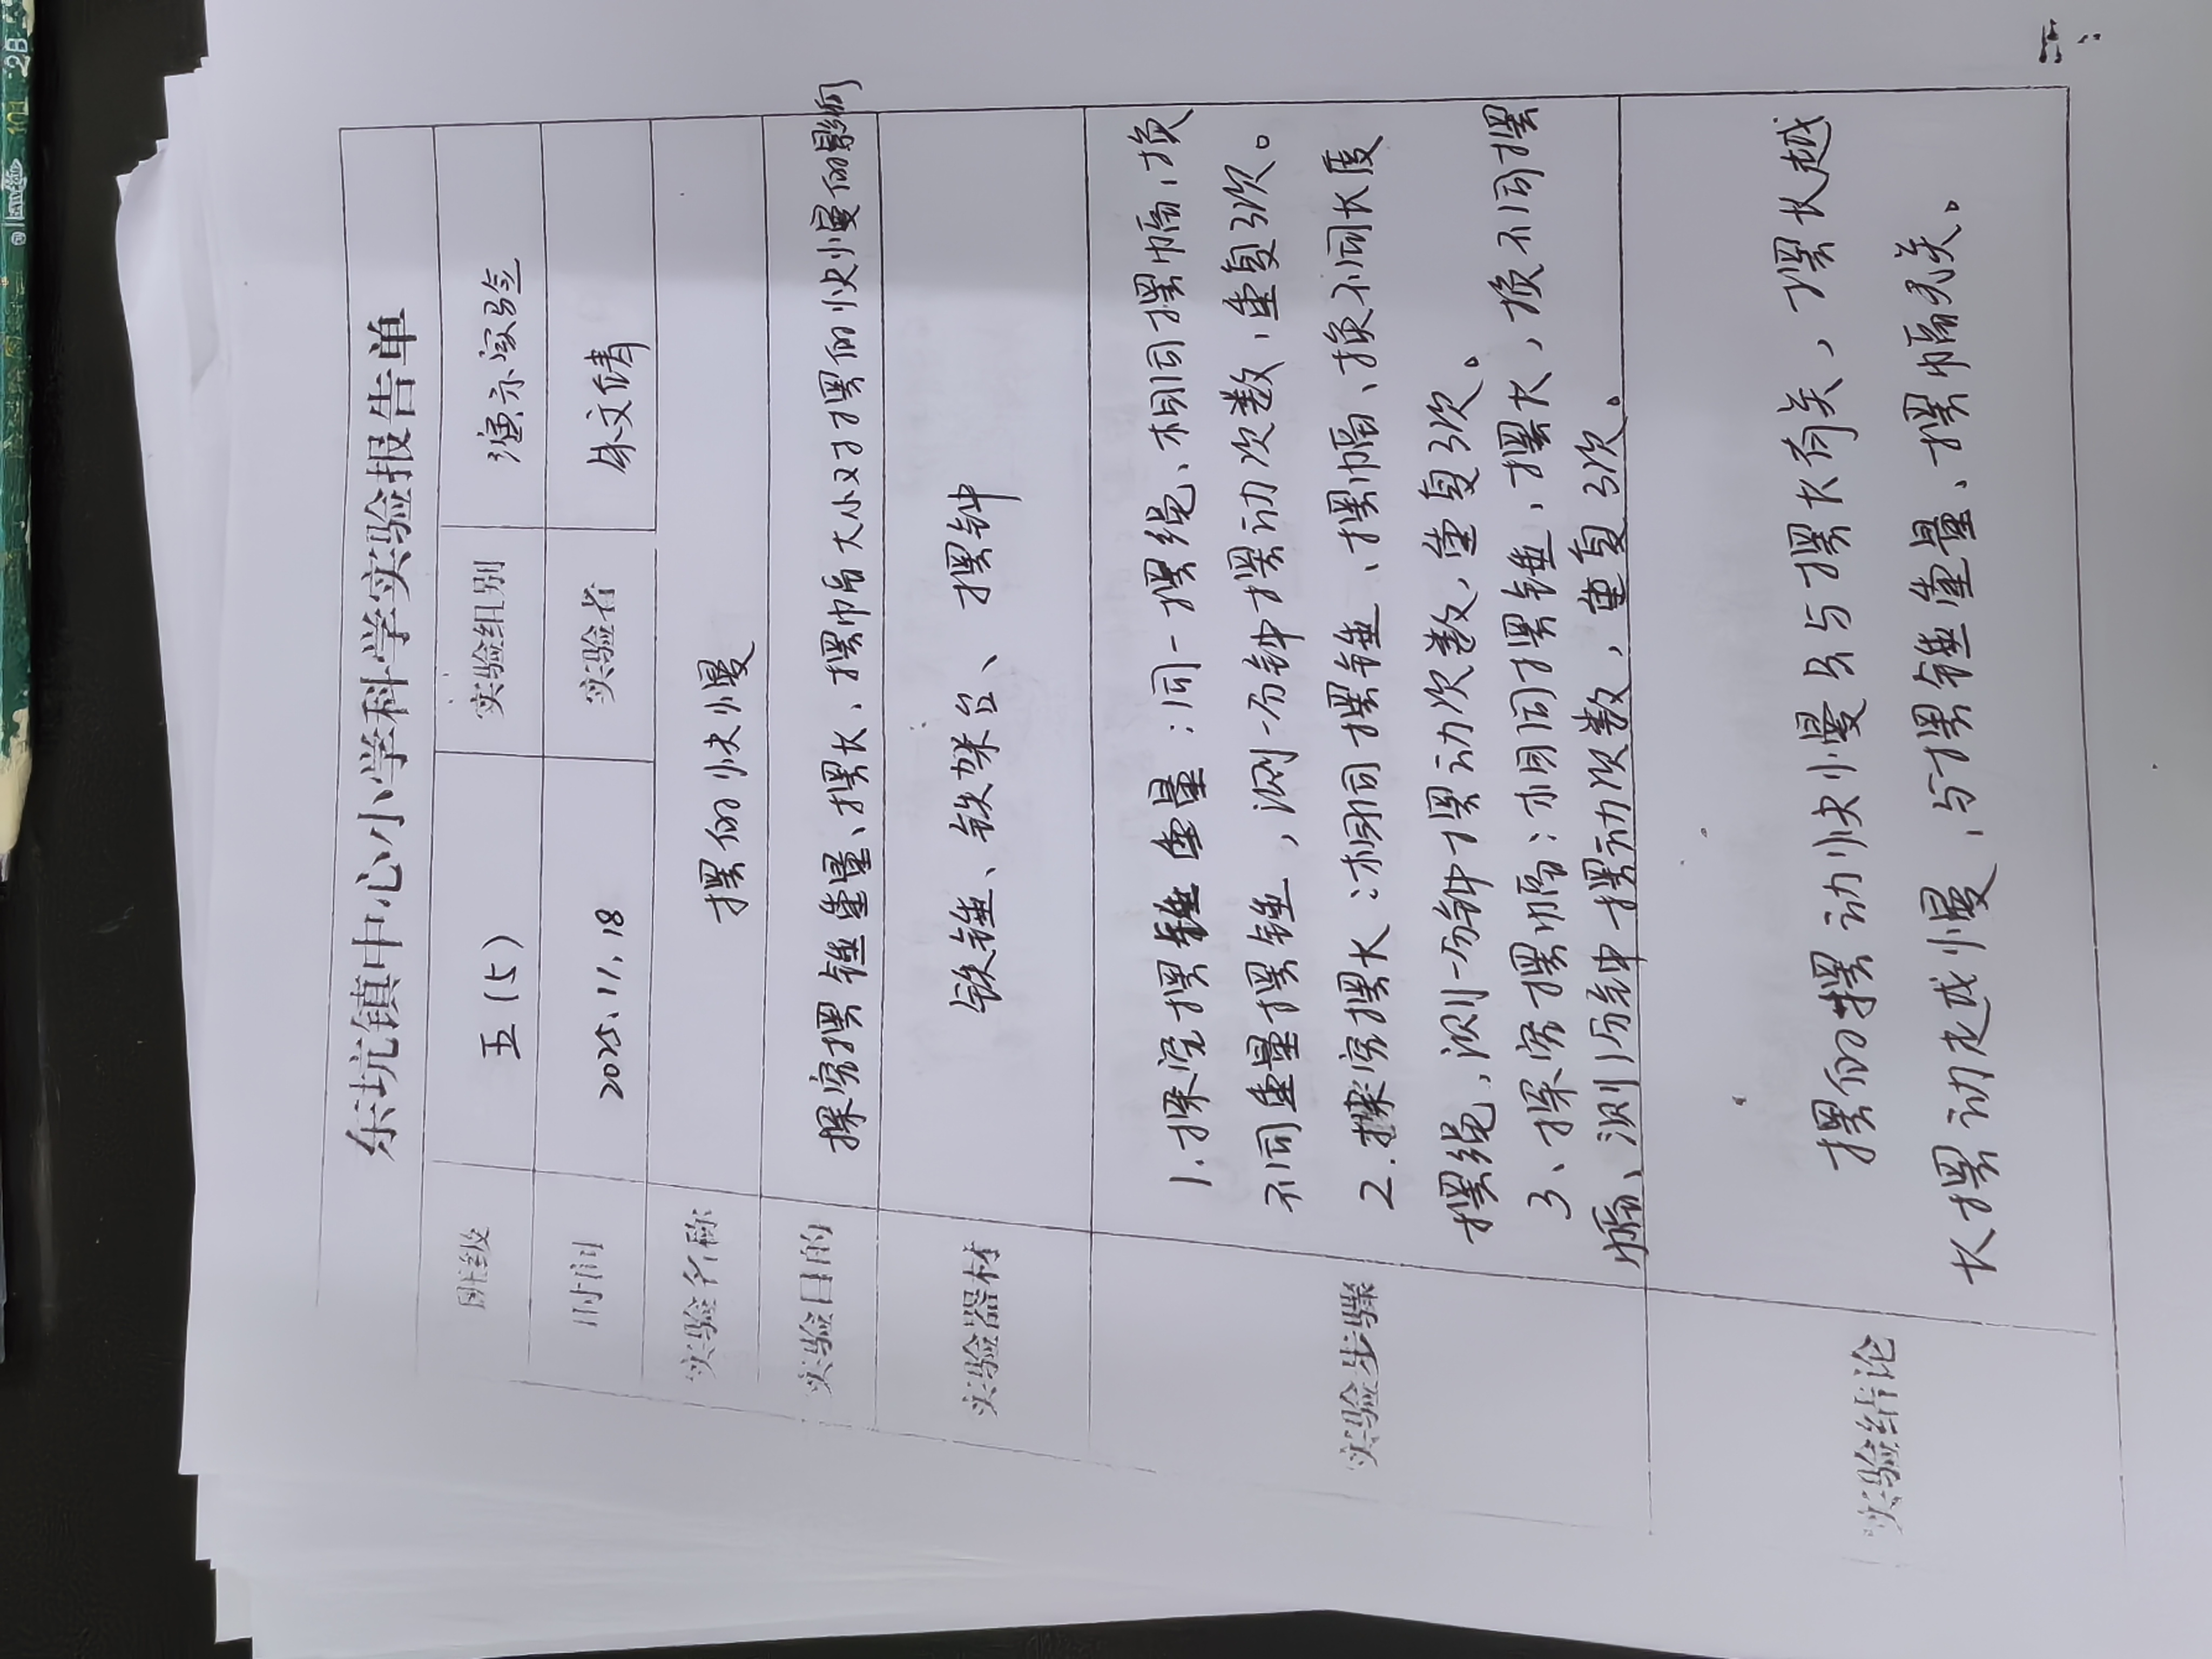 东坑镇中心小学科学实验报告单
班级 五(5) 实验组别 演示实验
时间 2025.11.18 实验者 朱文倩
实验名称 摆的快慢
实验目的 探究摆锤重量、摆长、摆幅大小对摆的快慢的影响
实验器材 铁锤、铁架台、摆钟
实验步骤
1.探究摆锤重量:同一摆绳、相同摆幅、换
不同重量摆锤,测一分钟摆动次数,重复3次。
2.探究摆长:相同摆锤、摆幅、换不同长度
摆绳,测一分钟摆动次数,重复3次。
3、探究摆幅:相同摆锤、摆长,换不同摆
幅、测1分钟摆动次数,重复3次。
实验结论
摆的摆动快慢只与摆长有关,摆长越
长摆动越慢,与摆锤重量、摆幅无关。
2B
101